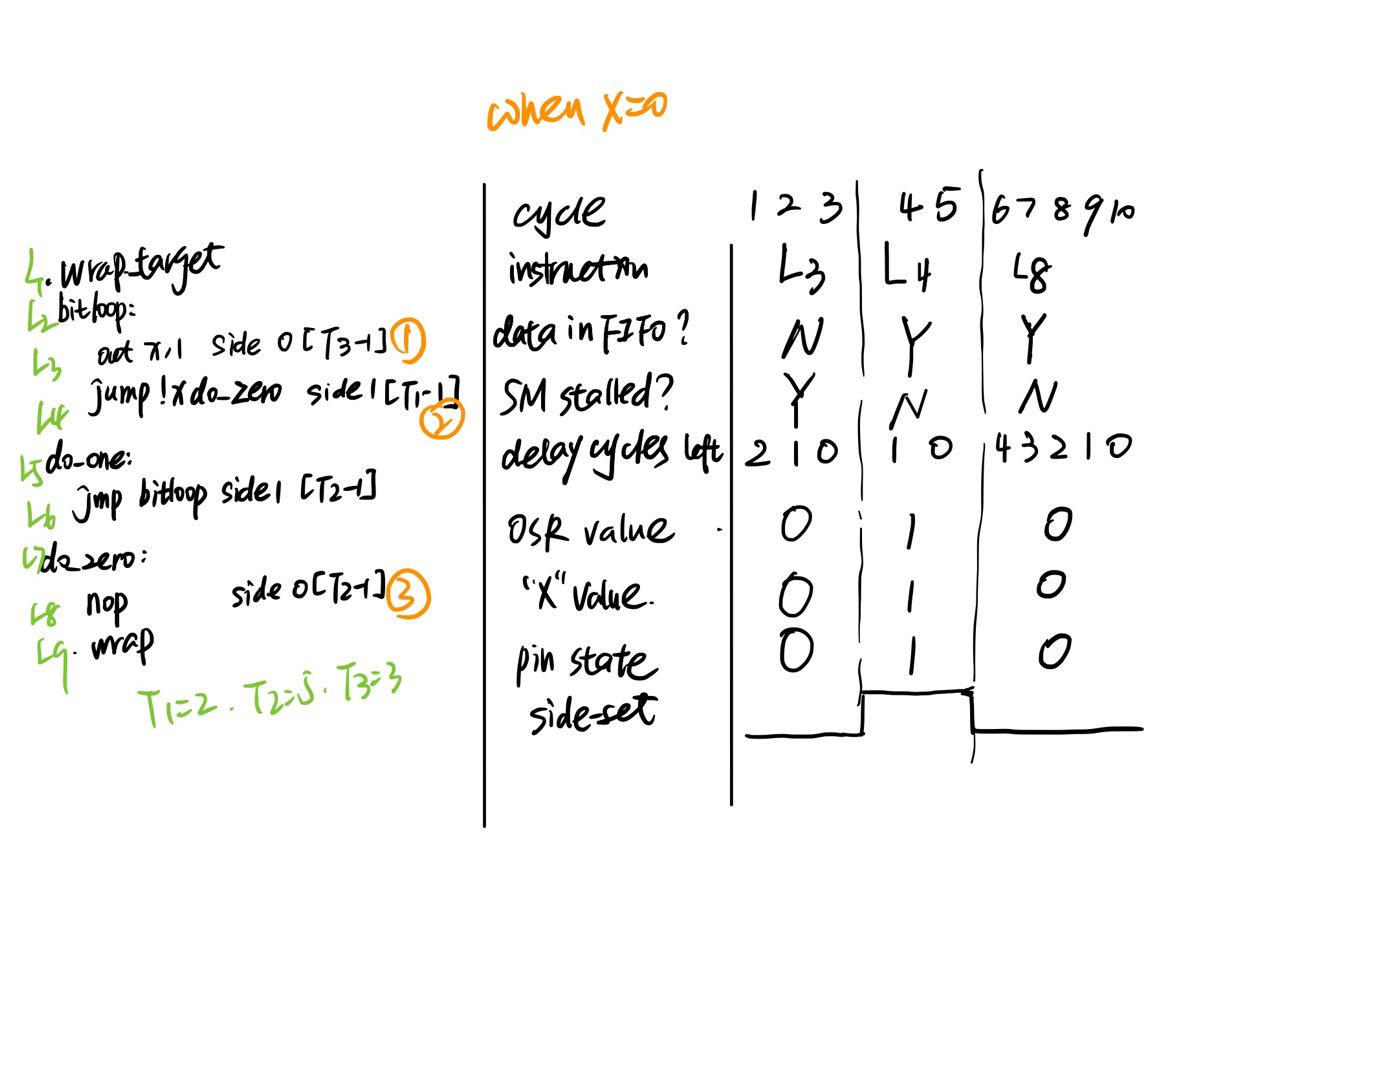 when x=0
L1 .wrap_target
L2 bitloop:
L3 out x,1 side 0 [T3-1] ①
L4 jump !x do_zero side 1 [T1-1] ②
L5 do-one:
L6 jmp bitloop side 1 [T2-1]
L7 do_zero:
L8 nop side 0 [T2-1] ③
L9 .wrap
T1=2. T2=5. T3=3
cycle 1 2 3 4 5 6 7 8 9 10
instruction L3 L4 L8
data in FIFO? N Y Y
SM stalled? Y N N
delay cycles left 2 1 0 1 0 4 3 2 1 0
OSR value 0 1 0
"X" value. 0 1 0
pin state 0 1 0
side-set